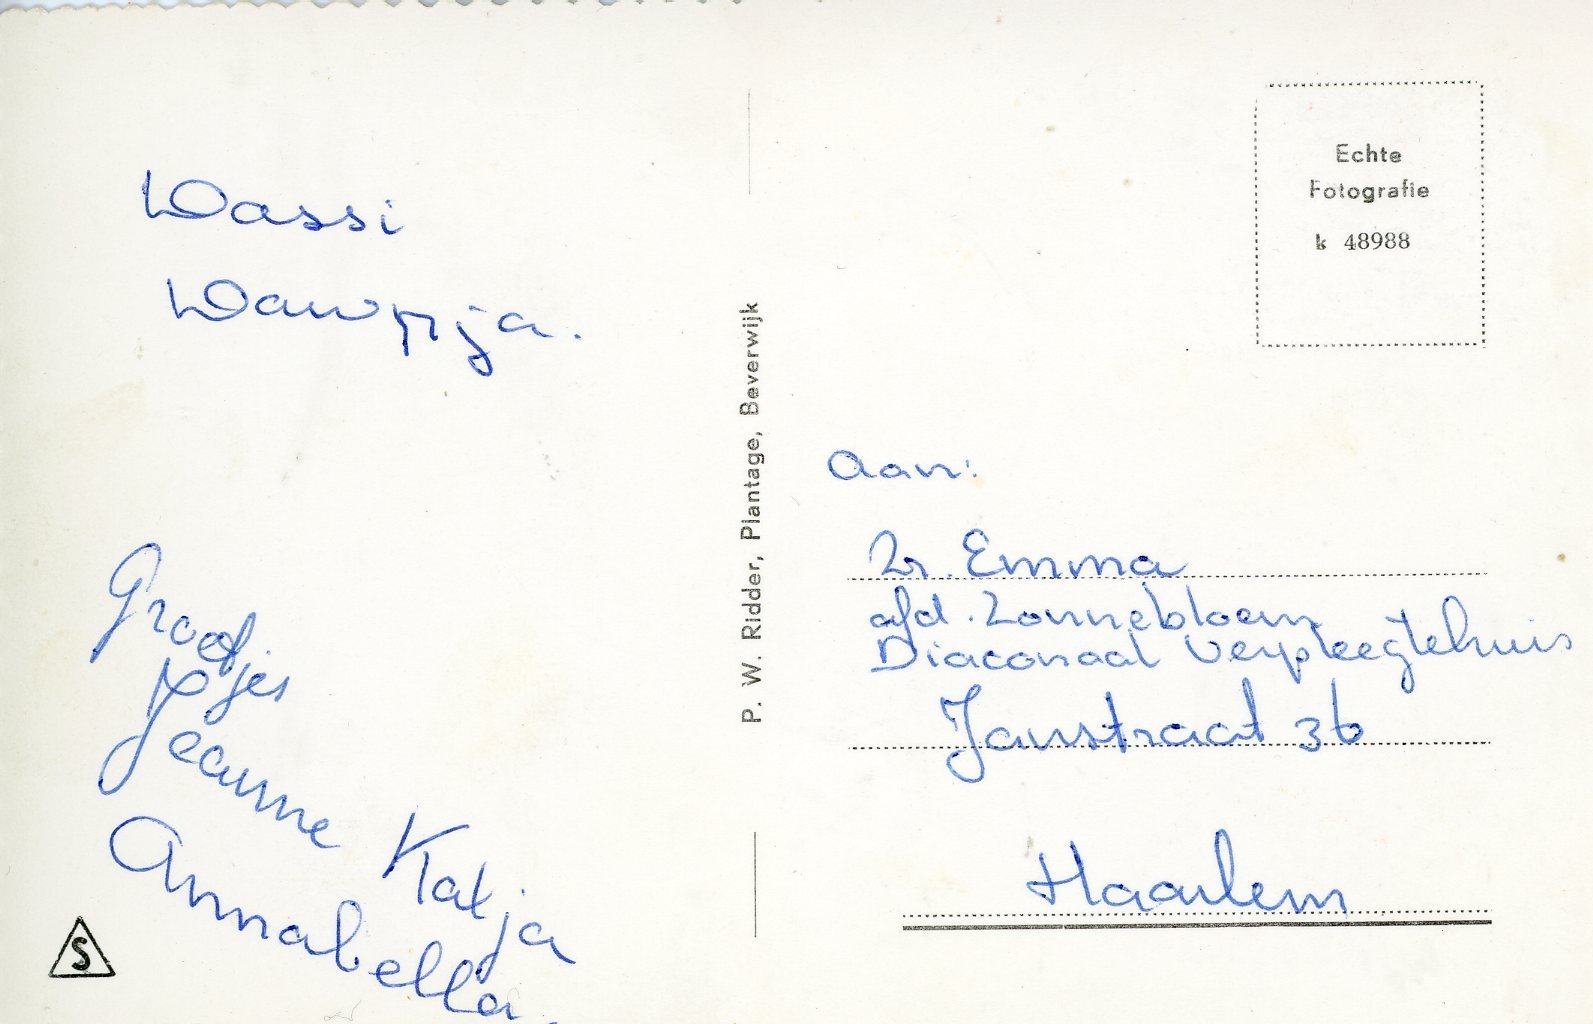 Dassi
Dawpja.
Grootjes
Jeanne Katja
Annabella.
P. W. Ridder, Plantage, Beverwijk
Echte
Fotografie
k 48988
Aan:
Zr. Emma
afd. Zonnebloem
Diaconaal Verpleegtehuis
Janstraat 36
Haarlem
S